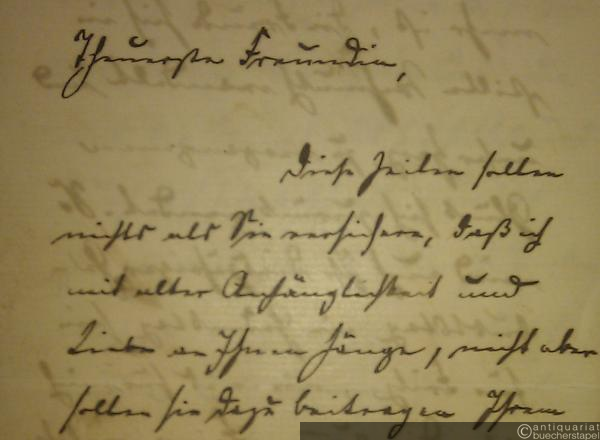 Theuerste Freundin,
Diese Zeilen sollen
nichts als Sie versichern, daß ich
mit alter Anhänglichkeit und
Liebe an Ihnen hänge, nicht aber
sollen sie dazu beitragen Ihrem
antiquariat
buecherstapel